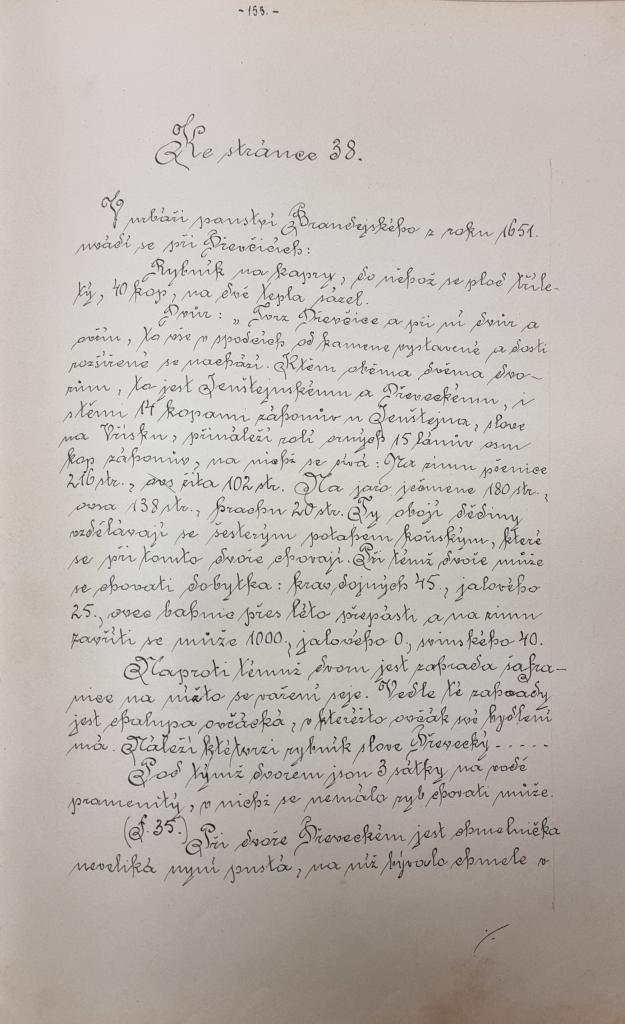 - 155. -
Ke stránce 38.
V urbáři panství Brandejského z roku 1651.
uvádí se při Dřevčicích:
Rybník na kapry, do něhož se plod tříle-
tý, 40 kop, na dvě tepla sázel.
Dvůr: „Tvrz Dřevčice a při ní dvůr a
ovčín, to vše v spodcích od kamene vystavené a dosti
rozšířené se nachází. K těm oběma dvěma dvo-
rům, to jest Jenštejnskému a Dřeveckému, i
s těmi 14 kopami záhonův u Jenštejna, slove
na Vřísku, přináleží rolí orných 15 lánův osm
kop záhonův, na nichž se sívá: Na zimu pšenice
216 str., žita 102 str. Na jaro ječmene 180 str.,
ovsa 138 str., hrachu 20 str. Ty obojí dědiny
vzdělávají se šesterým potahem koňským, které
se při tomto dvoře chovají. Při témž dvoře může
se chovati dobytka: krav dojných 45., jalového
25., ovec bahnic přes léto přepásti a na zimu
zavříti se může 1000., jalového 0., svinského 40.
Naproti témuž dvoru jest zahrada šafra-
nice na nížto se vaření seje. Vedle té zahrady
jest chalupa ovčácká, v kteréžto ovčák své bydlení
má. Náleží k té tvrzi rybník slove Dřevecký - - - - -
Pod týmž dvorem jsou 3 sátky na vodě
pramenitý, v nichž se nemálo ryb chovati může.
(F. 35.) Při dvoře Dřeveckém jest chmelnička
neveliká nyní pustá, na níž bývalo chmele v
./.